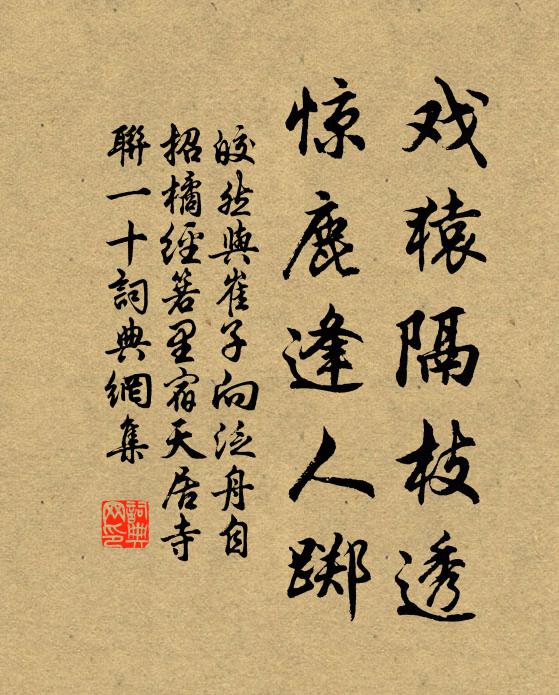 戏猿隔枝透
惊鹿逢人踯
皎然與崔子向泛舟自
招橘經箬里宿天居寺
聯一十詞典網集
詞典网印